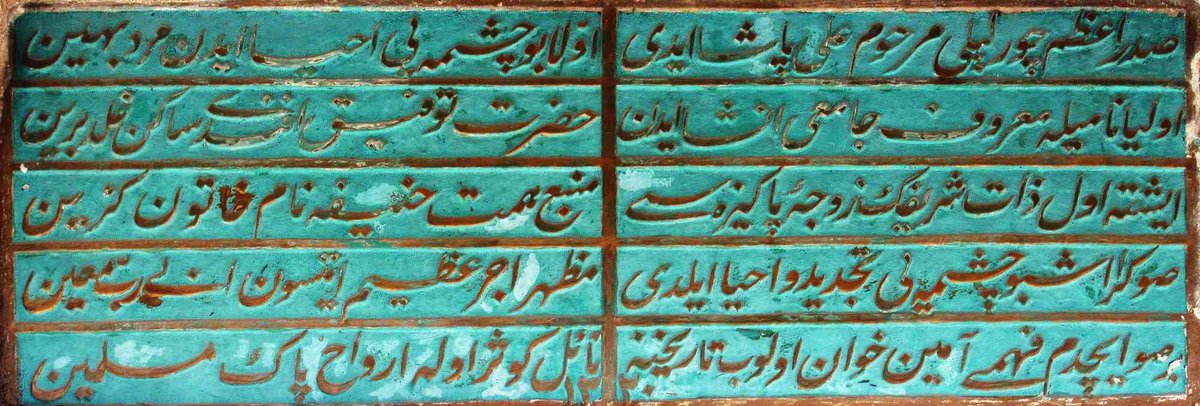 صدر اعظم چورلیلی مرحوم علی پاشا ایدی
اولا بو چشمه یی احیا ایدن مرد بهین
اولیا نامیله معروف جامعی انشا ایدن
حضرت توفیق افندی ساکن خلد برین
ایشته اول ذات شریفك زوجهٔ پاکیزه سی
منبع همت حنیفه نام خاتون کزین
صوکرا اشبو چشمه یی تجدید و احیا ایلدی
مظهر اجر عظیم ایتسون انی رب معین
بر صو ایچدم فهمی آمین خوان اولوب تاریخینه
نائل کوثر اوله ارواح پاك مسلمین